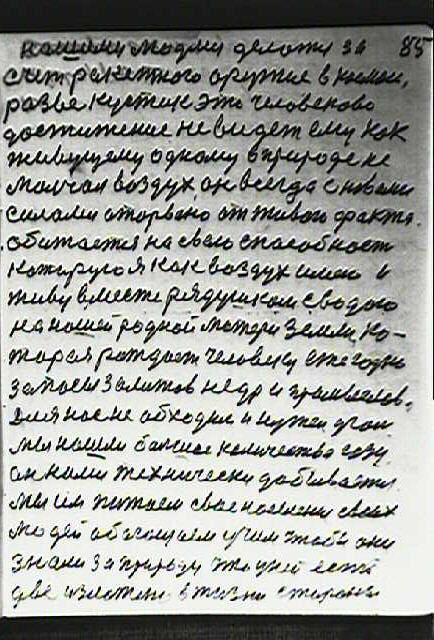 нашими людми делами за 85
счет ракетного оружие в космос,
разве кустик это человеково
достижение не видет ему как
живущему одному в природе не
молчал воздух он всегда с новыми
силами оторвано от живого факта.
обитается на свою способност
которую я как воздух имею и
живу вместе рядушком с водою
на нашей родной матери земли, ко-
торая рождает человеку ежегодно
запасы залитов недр и
для нас не обходим и нужен
мы нашли большое количество газу
он нами технически добывается
мы им питаем свое населени своих
людей обогощаем учим чтобы они
знали за природу что у ней есть
две в жизни стороны